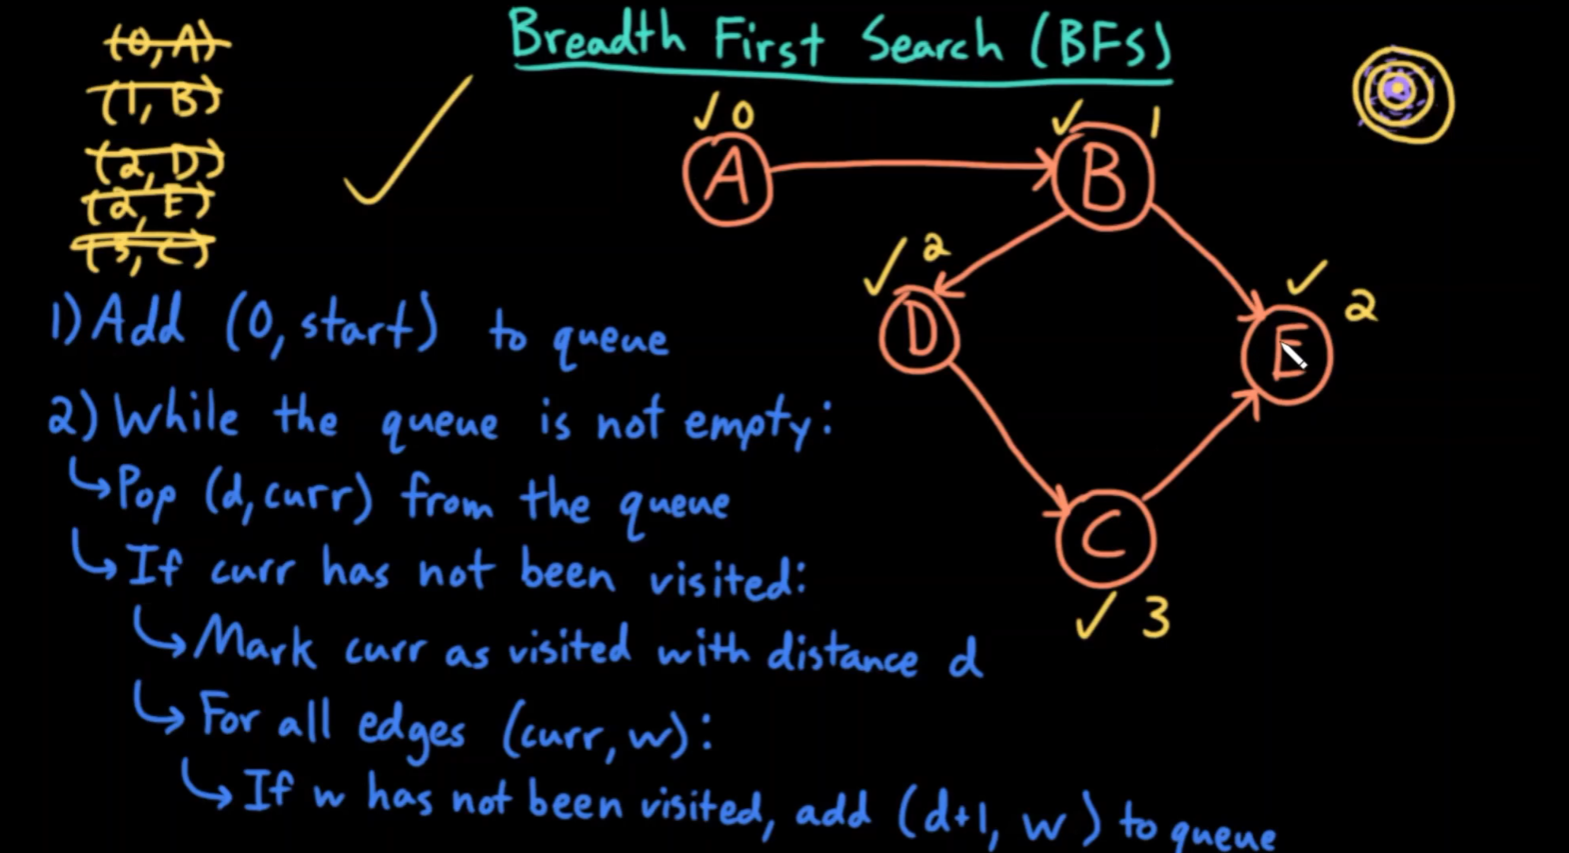 Breadth First Search (BFS)
(0, A)
(1, B)
(2, D)
(2, E)
(3, C)
0
A
B
1
2
D
E
2
C
3
1) Add (0, start) to queue
2) While the queue is not empty:
Pop (d, curr) from the queue
If curr has not been visited:
Mark curr as visited with distance d
For all edges (curr, w):
If w has not been visited, add (d+1, w) to queue